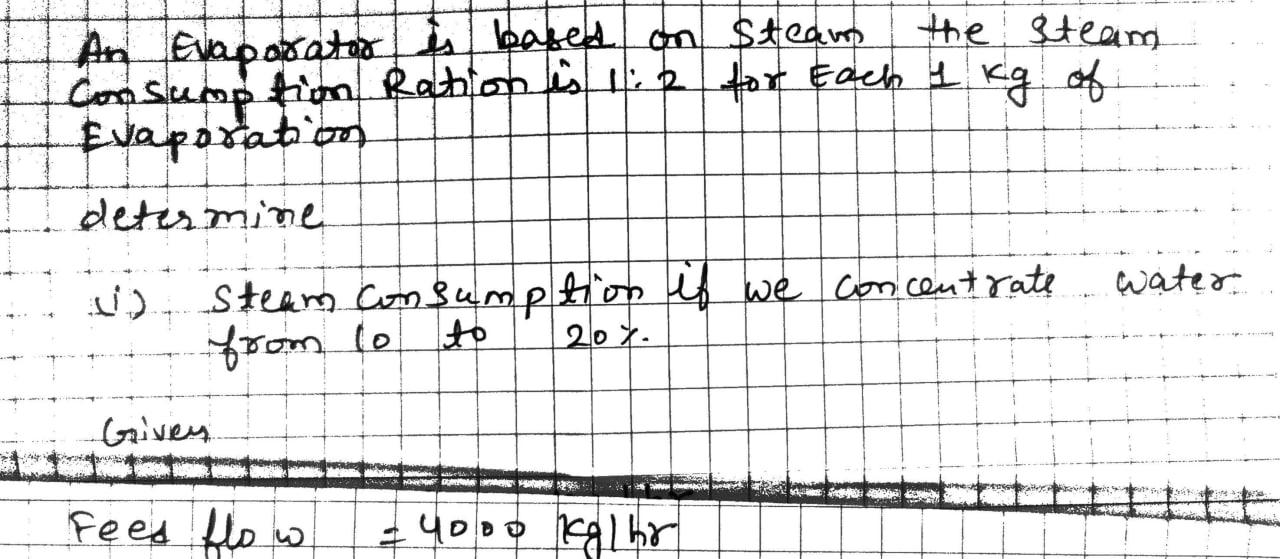 An Evaporator is based on Steam the steam
Consumption Ration is 1:2 for Each 1 kg of
Evaporation
determine
(i) Steam Consumption if we concentrate water
from 10 to 20%.
Given
Feed flow = 4000 kg/hr